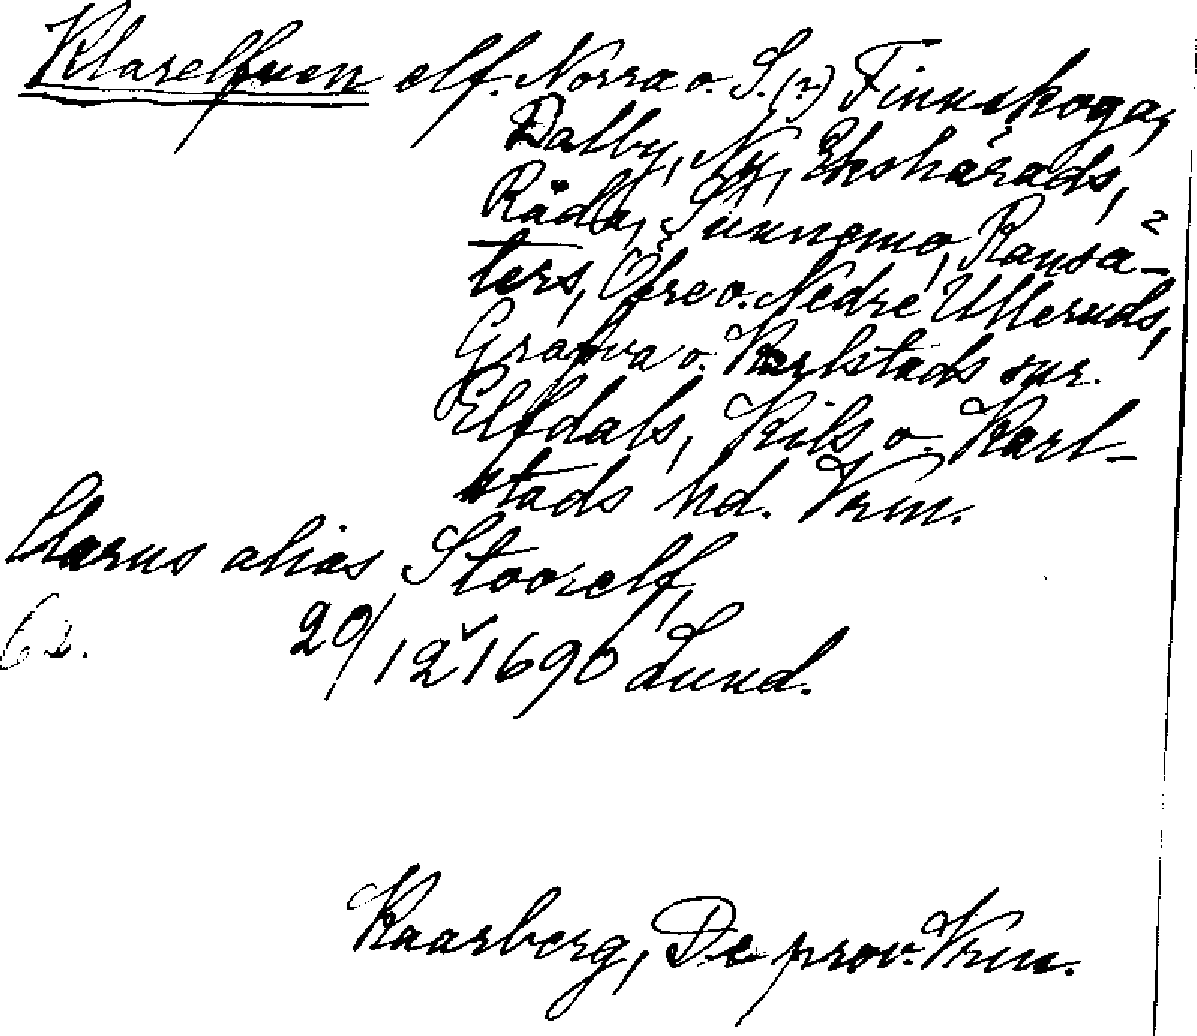 Klarelfven elf. Norra o. S. (?) Finnskoga,
Dalby, Ny, Ekshärads,
Räda, Sunnemo, Ransä-
ters, Öfre o. Nedre Ulleruds,
Grafva o. Karlstads snr.
Elfdals, Kils o. Karl-
stads hd. Vrm.
Clarus alias Stoorelf,
62. 20/12 1690 Lund.
Kaarberg, De prov. Vrm.